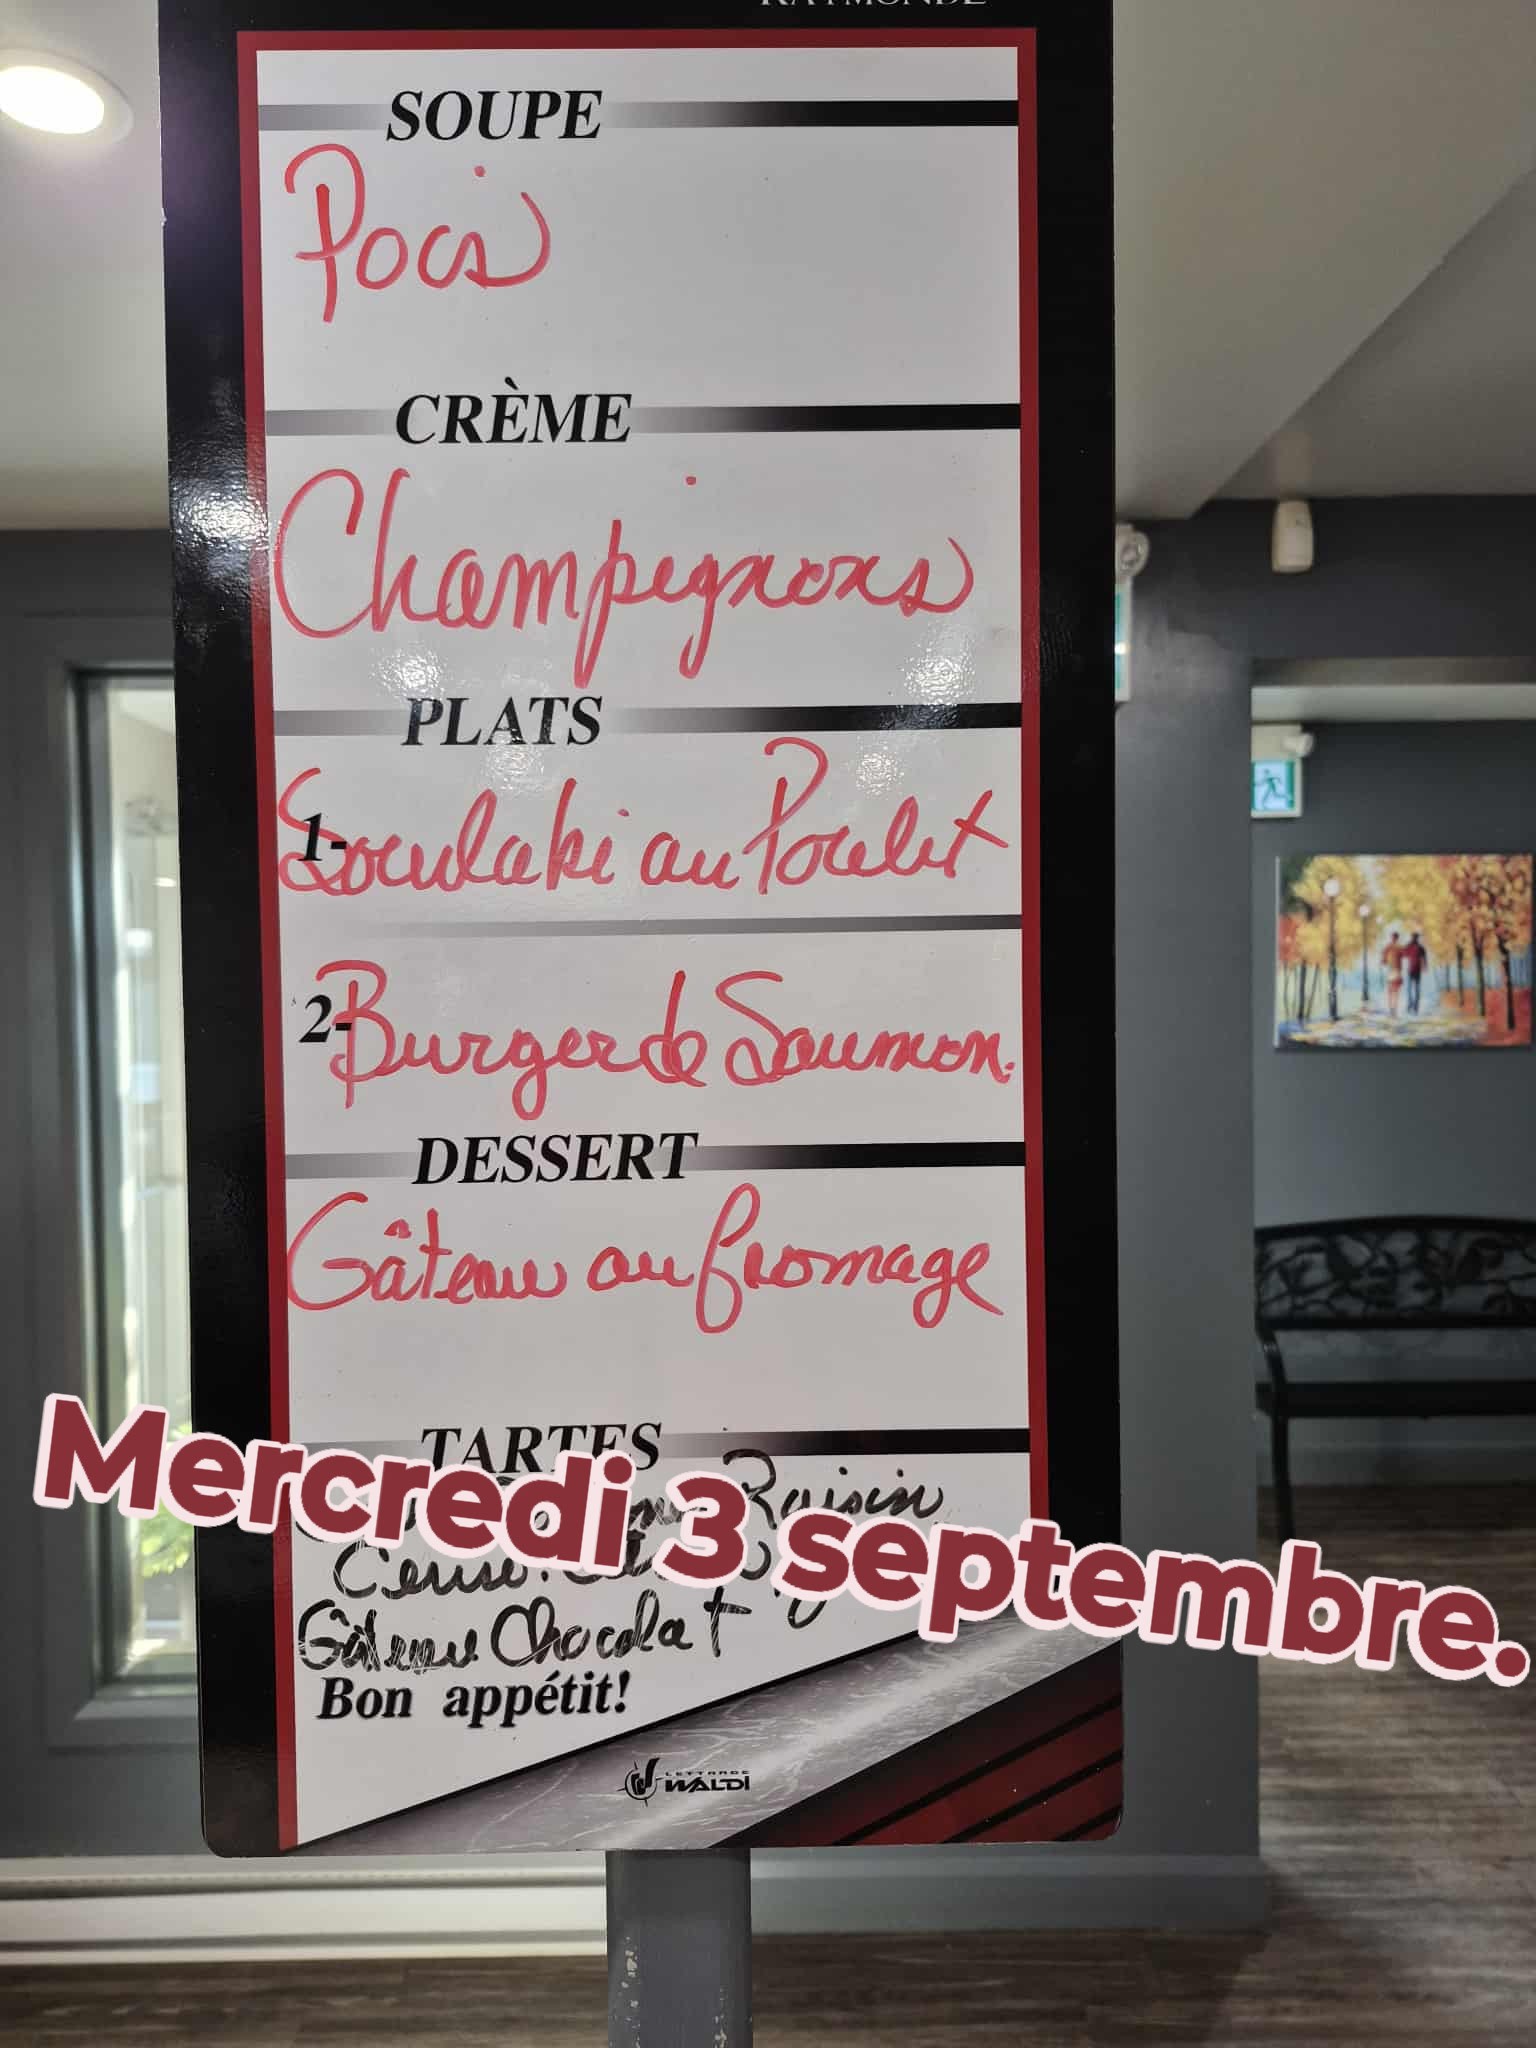 RAYMONDE
SOUPE
Pois
CRÈME
Champignons
PLATS
1- Souvlaki au Poulet
2- Burger de Saumon.
DESSERT
Gâteau au fromage
TARTES
Raisin
Cerise.
Gâteau Chocolat
Mercredi 3 septembre.
Bon appétit!
LETTRAGE
WALDI